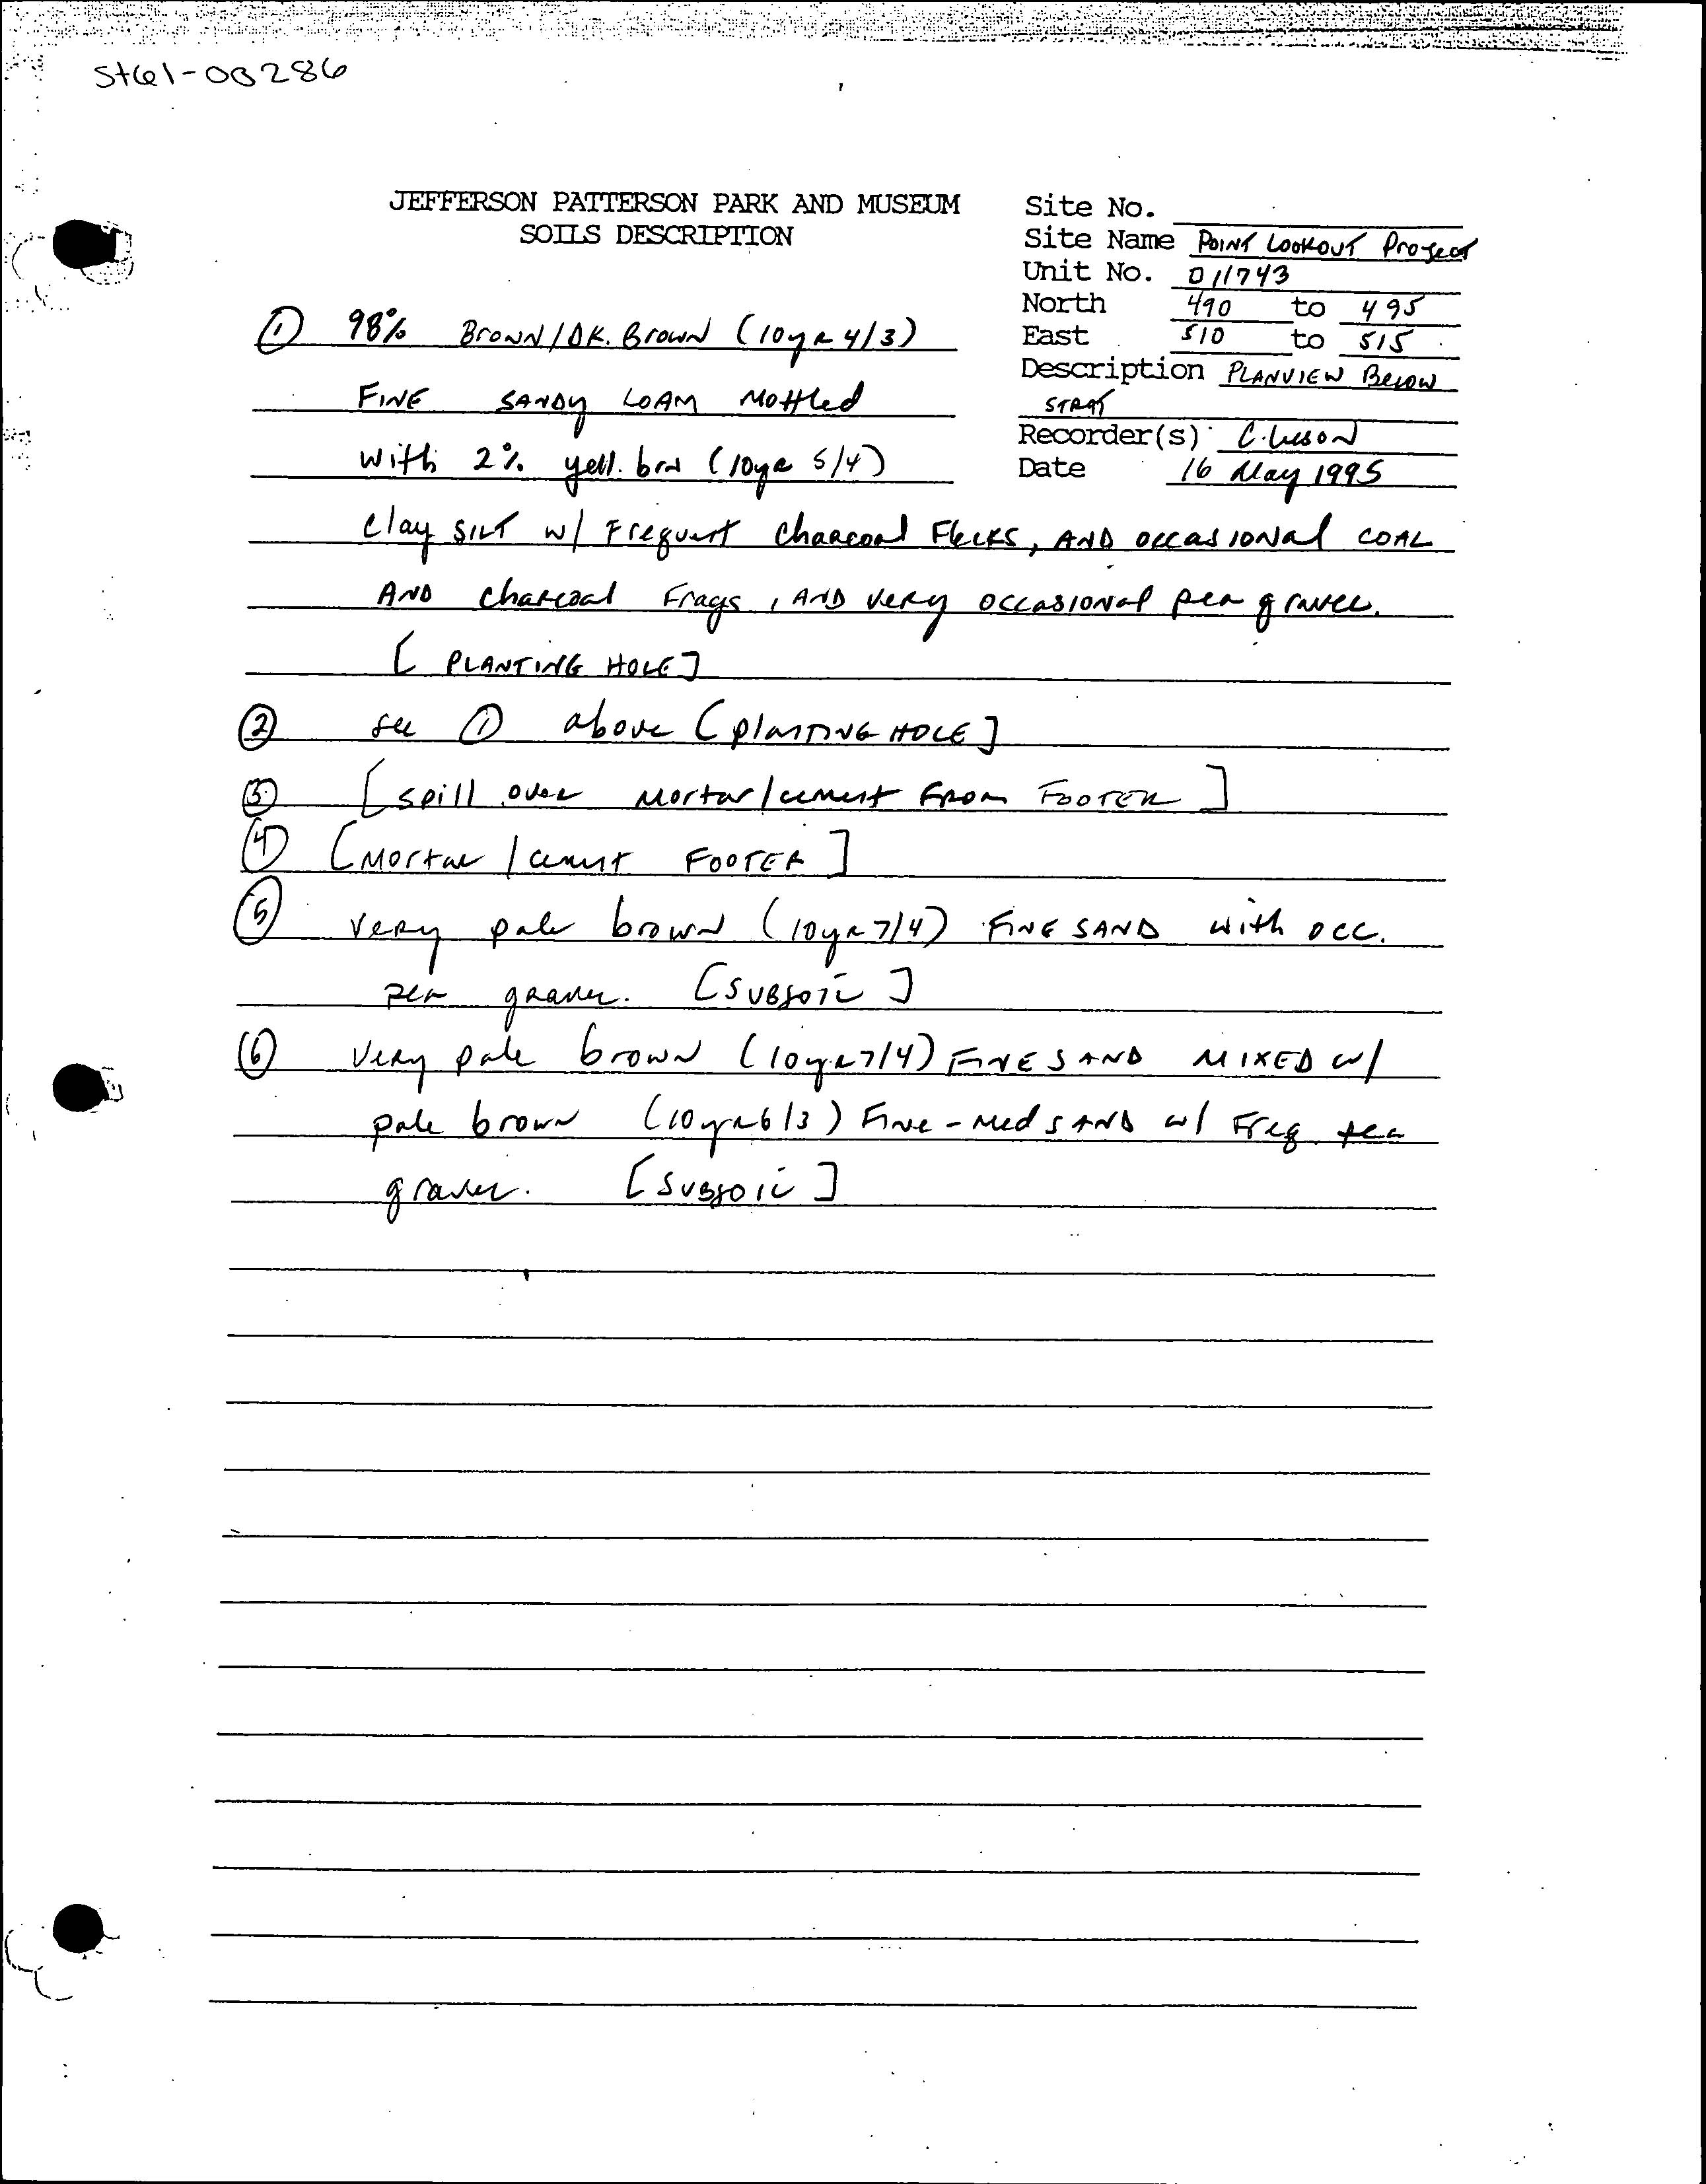 St61-00286
JEFFERSON PATTERSON PARK AND MUSEUM
SOILS DESCRIPTION
Site No.
Site Name POINT LOOKOUT Project
Unit No. 011743
North 490 to 495
East 510 to 515
Description PLANVIEW Below
STRAT
Recorder(s)
Date 16 May 1995
① 98% BROWN/DK. Brown (10yR 4/3)
FINE SANDY LOAM Mottled
with 2% yell. brn (10yR 5/4)
clay SILT w/ Frequent Charcoal Flecks, AND occasional COAL
AND charcoal Frags, AND very occasional pea gravel.
[PLANTING HOLE]
② see ① above [planTING HOLE]
③ [spill over Mortar/cement From FOOTER]
④ [Mortar/cement FOOTER]
⑤ very pale brown (10yR 7/4) FINE SAND with occ.
pea gravel. [SUBSOIL]
⑥ Very pale brown (10yR 7/4) FINE SAND MIXED w/
pale brown (10yR 6/3) Fine-Med SAND w/ Freq. pea
gravel. [SUBSOIL]